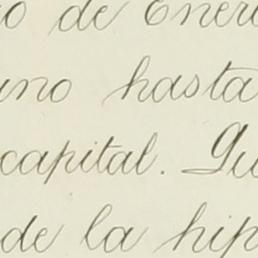 o de Enero
uno hasta
capital. Gu
de la hip